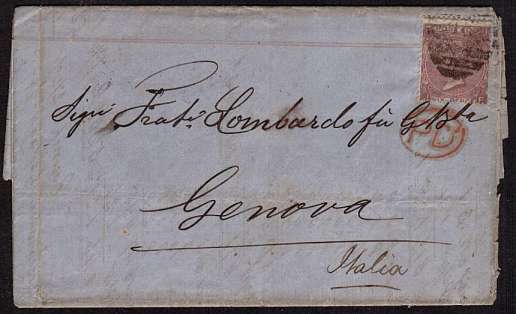 Sigri Frati Lombardo fu G Bta
PD
Genova
Italia